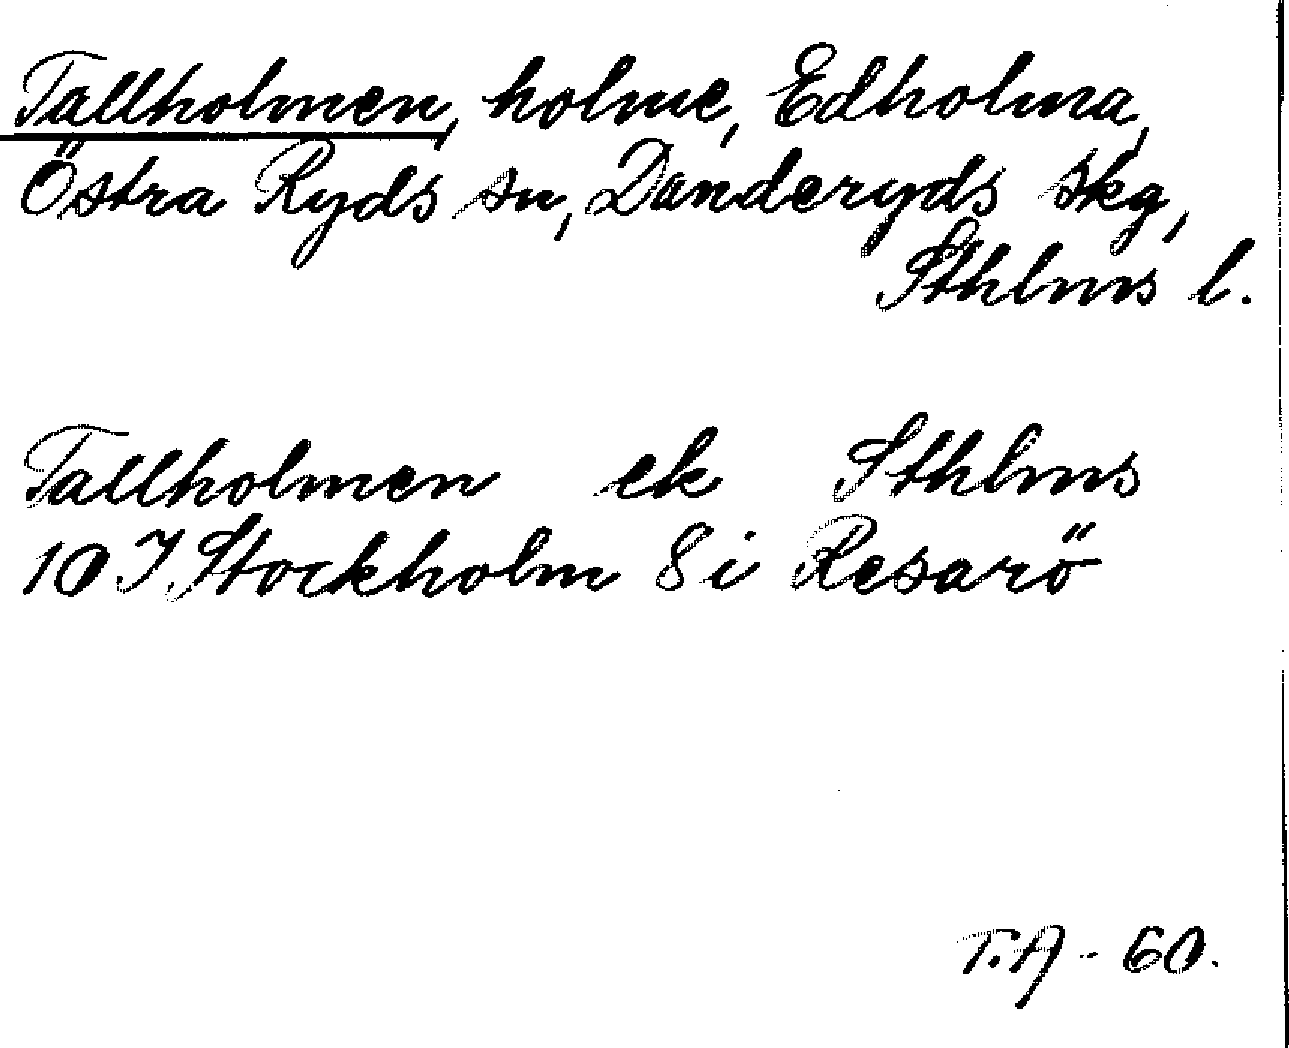 Tallholmen, holme, Edholma,
Östra Ryds sn, Danderyds skg,
Sthlms l.
Tallholmen ek Sthlms
10 I Stockholm 8 i Resarö
T.A - 60.